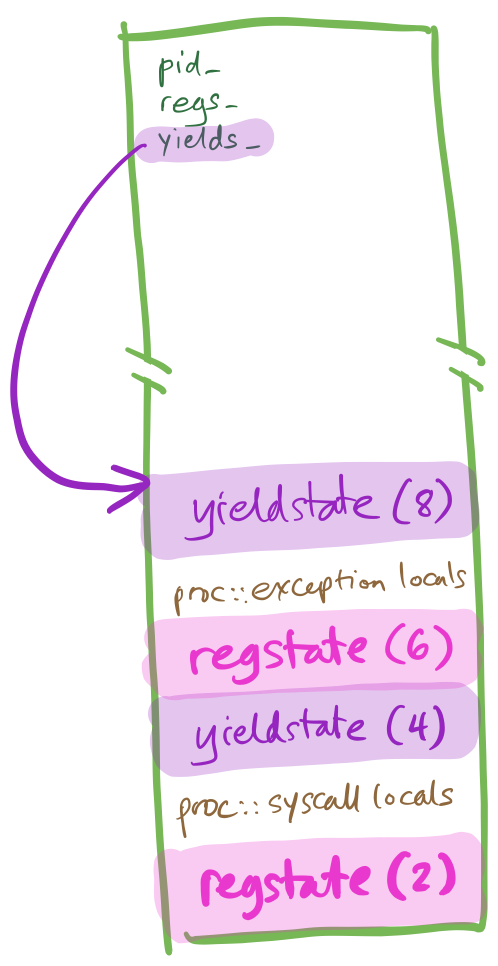 pid_
regs_
yields_
yieldstate (8)
proc::exception locals
regstate (6)
yieldstate (4)
proc:: syscall locals
regstate (2)